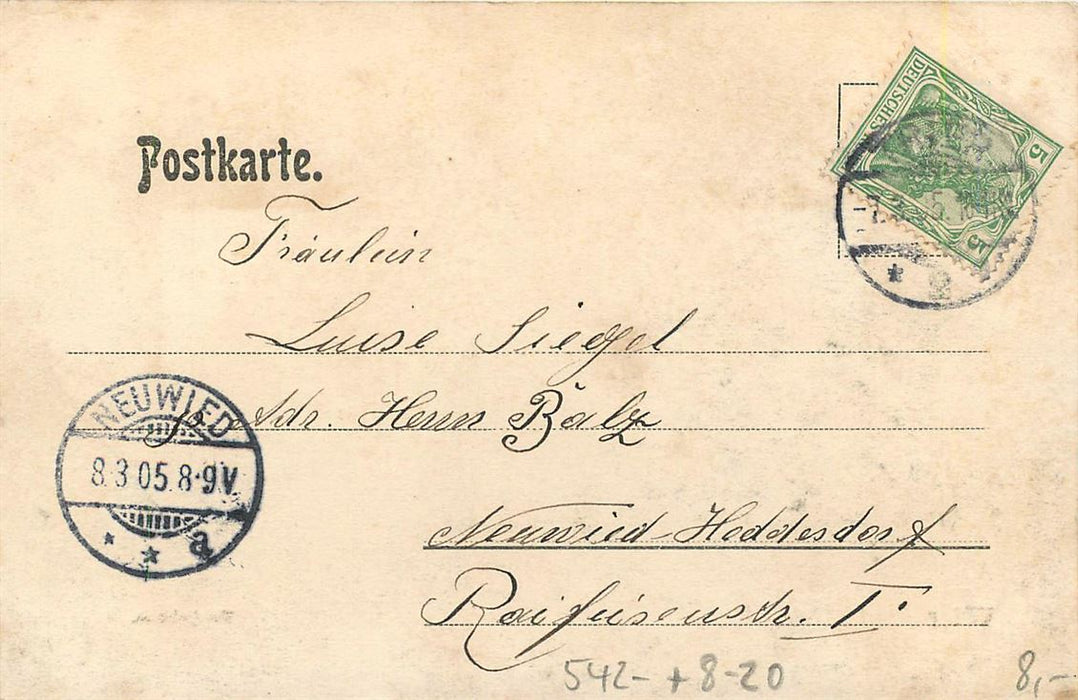 Postkarte.
DEUTSCHES
5
5
Fräulein
Luise Siegel
p. Adr. Herrn Bälz
NEUWIED
8.3.05.8-9V
* * a
Neuwied-Heddesdorf
Raifeisenstr. I.
* 2
542- + 8-20
8,-